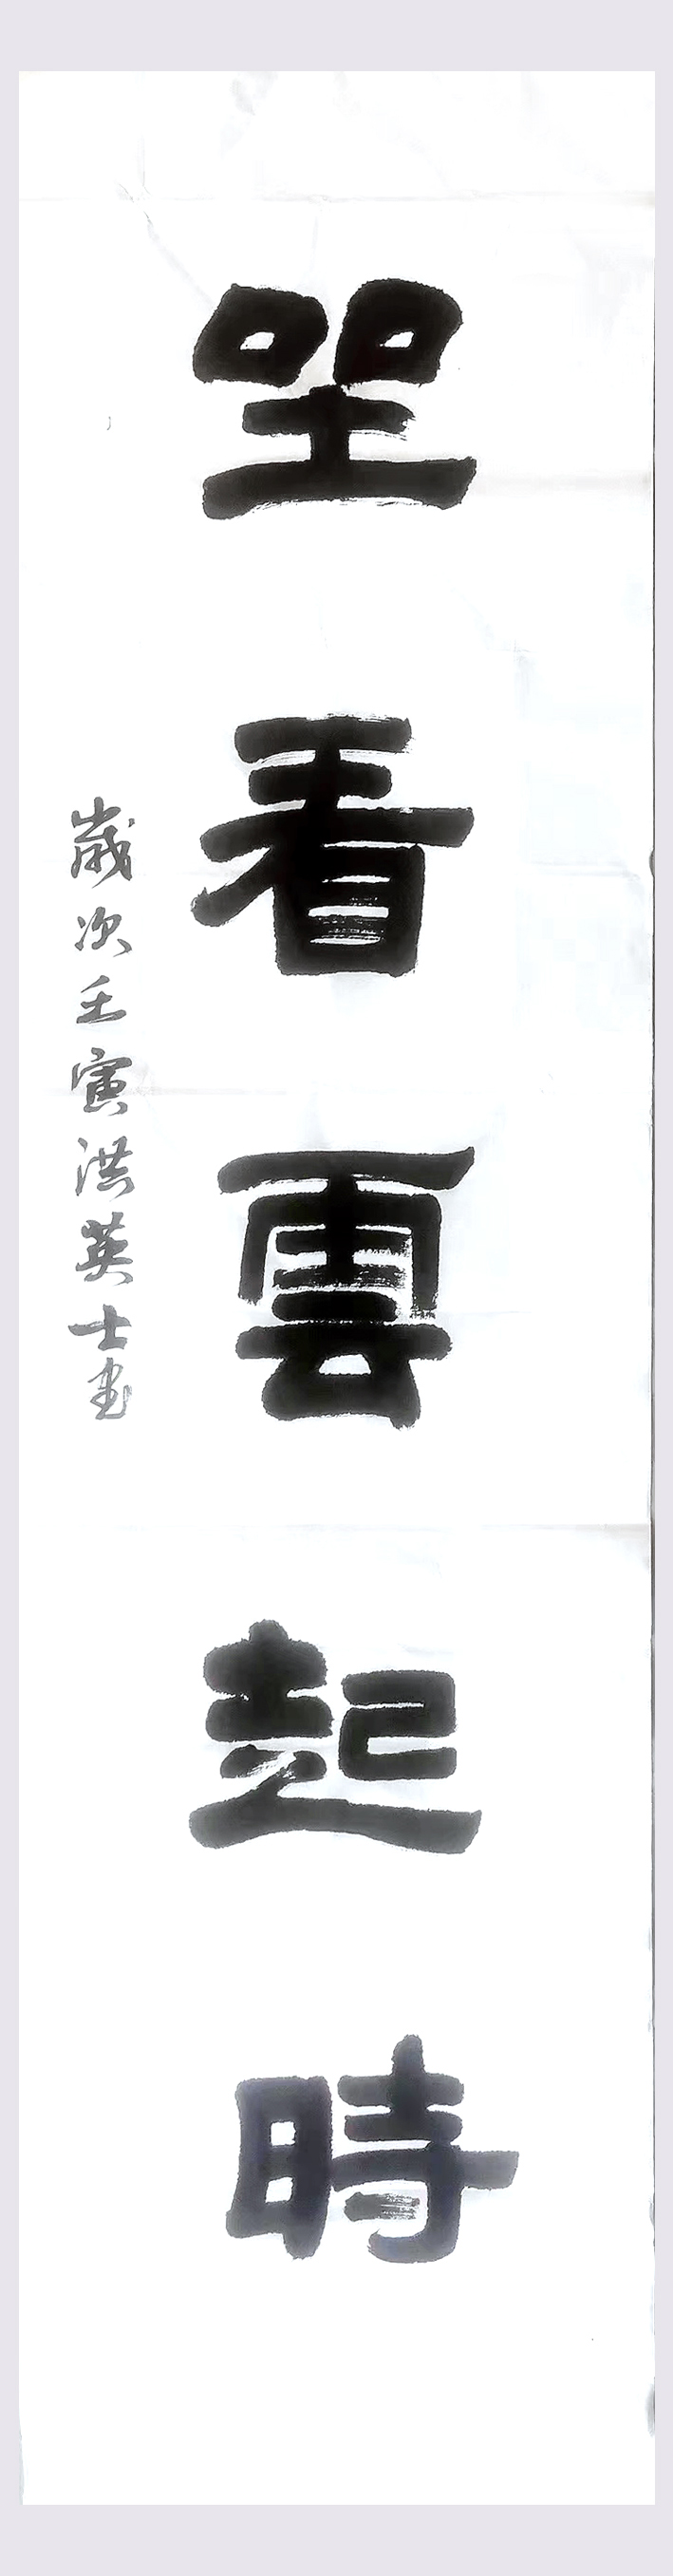 坐看雲起時
歲次壬寅洪英士书